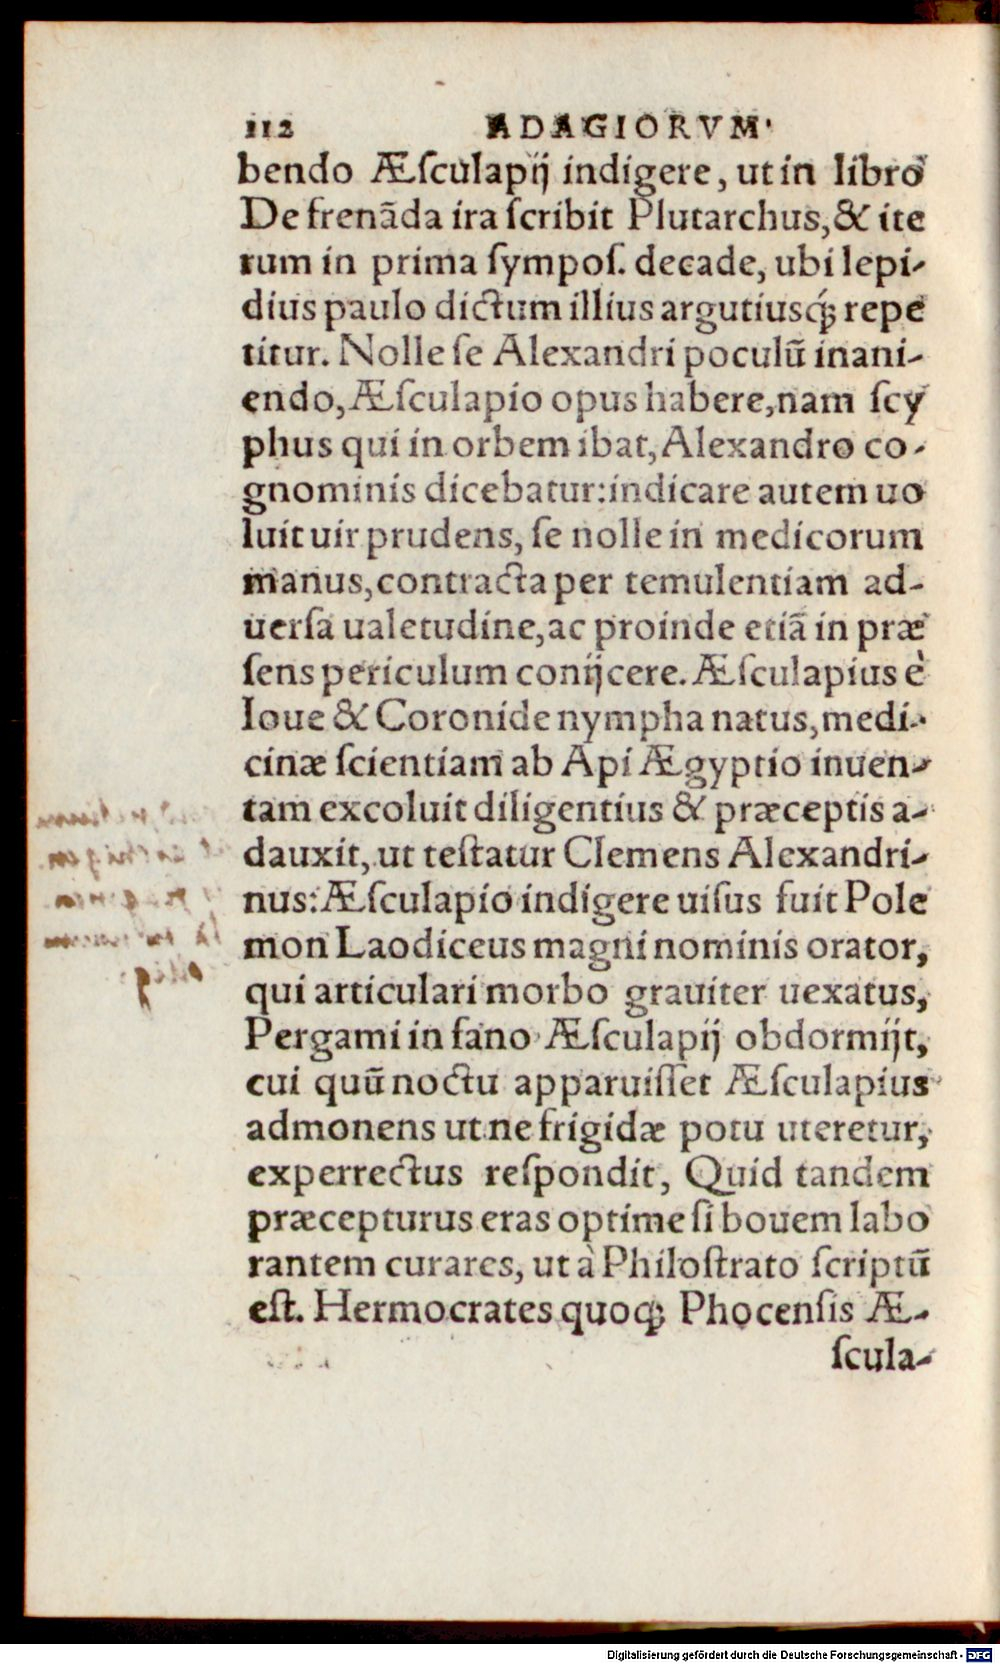 112 ADAGIORVM.
bendo Æſculapij indigere, ut in libro
De frenāda ira ſcribit Plutarchus, & ite
rum in prima ſympoſ. decade, ubi lepi-
dius paulo dictum illius argutiusq́; repe
titur. Nolle ſe Alexandri poculū inani-
endo, Æſculapio opus habere, nam ſcy
phus qui in orbem ibat, Alexandro co-
gnominis dicebatur: indicare autem uo
luit uir prudens, ſe nolle in medicorum
manus, contracta per temulentiam ad-
uerſa ualetudine, ac proinde etiā in præ
ſens periculum conijcere. Æſculapius è
Ioue & Coronide nympha natus, medi-
cinæ ſcientiam ab Api Ægyptio inuen-
tam excoluit diligentius & præceptis a-
dauxit, ut teſtatur Clemens Alexandri-
nus: Æſculapio indigere uiſus fuit Pole
mon Laodiceus magni nominis orator,
qui articulari morbo grauiter uexatus,
Pergami in fano Æſculapij obdormijt,
cui quū noctu apparuiſſet Æſculapius
admonens ut ne frigidæ potu uteretur,
experrectus reſpondit, Quid tandem
præcepturus eras optime ſi bouem labo
rantem curares, ut à Philoſtrato ſcriptū
eſt. Hermocrates quoq; Phocenſis Æ-
ſcula-
Digitalisierung gefördert durch die Deutsche Forschungsgemeinschaft - DFG